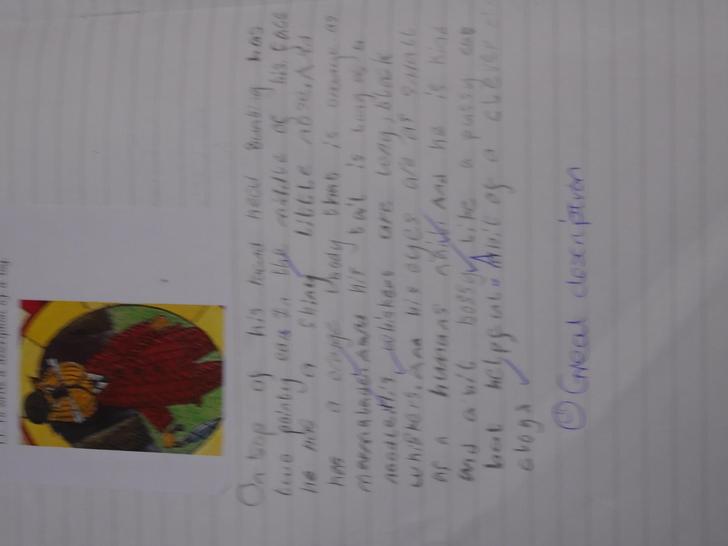 On top of his round head Bumbling has
two pointy ears In the middle of his face
he has a shiny little nose. And
has a large body that is orange as
marmalade. And his tail is long as a
noodle. His whiskers are long, black
whiskers. And his eyes are as small
as a humans And he is kind
and a bit bossy like a pussy cat
but helpful. A bit of a clever
dogs
Great description